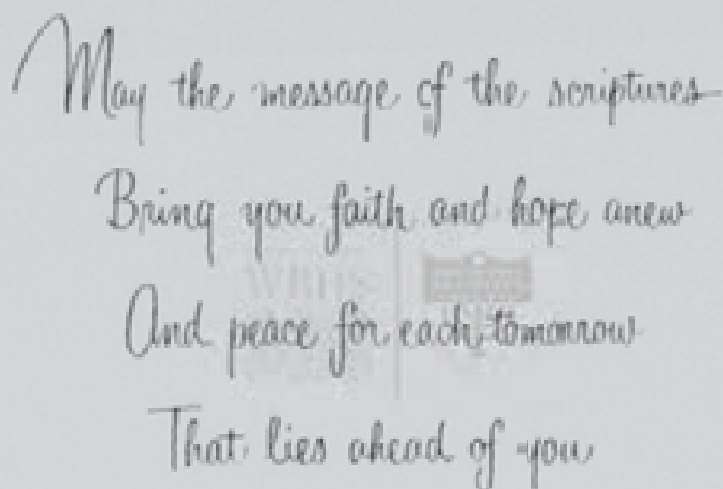 May the message of the scriptures
Bring you faith and hope anew
And peace for each tomorrow
That lies ahead of you